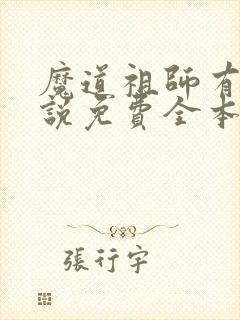 魔道祖師有
說免費全本
張行宇